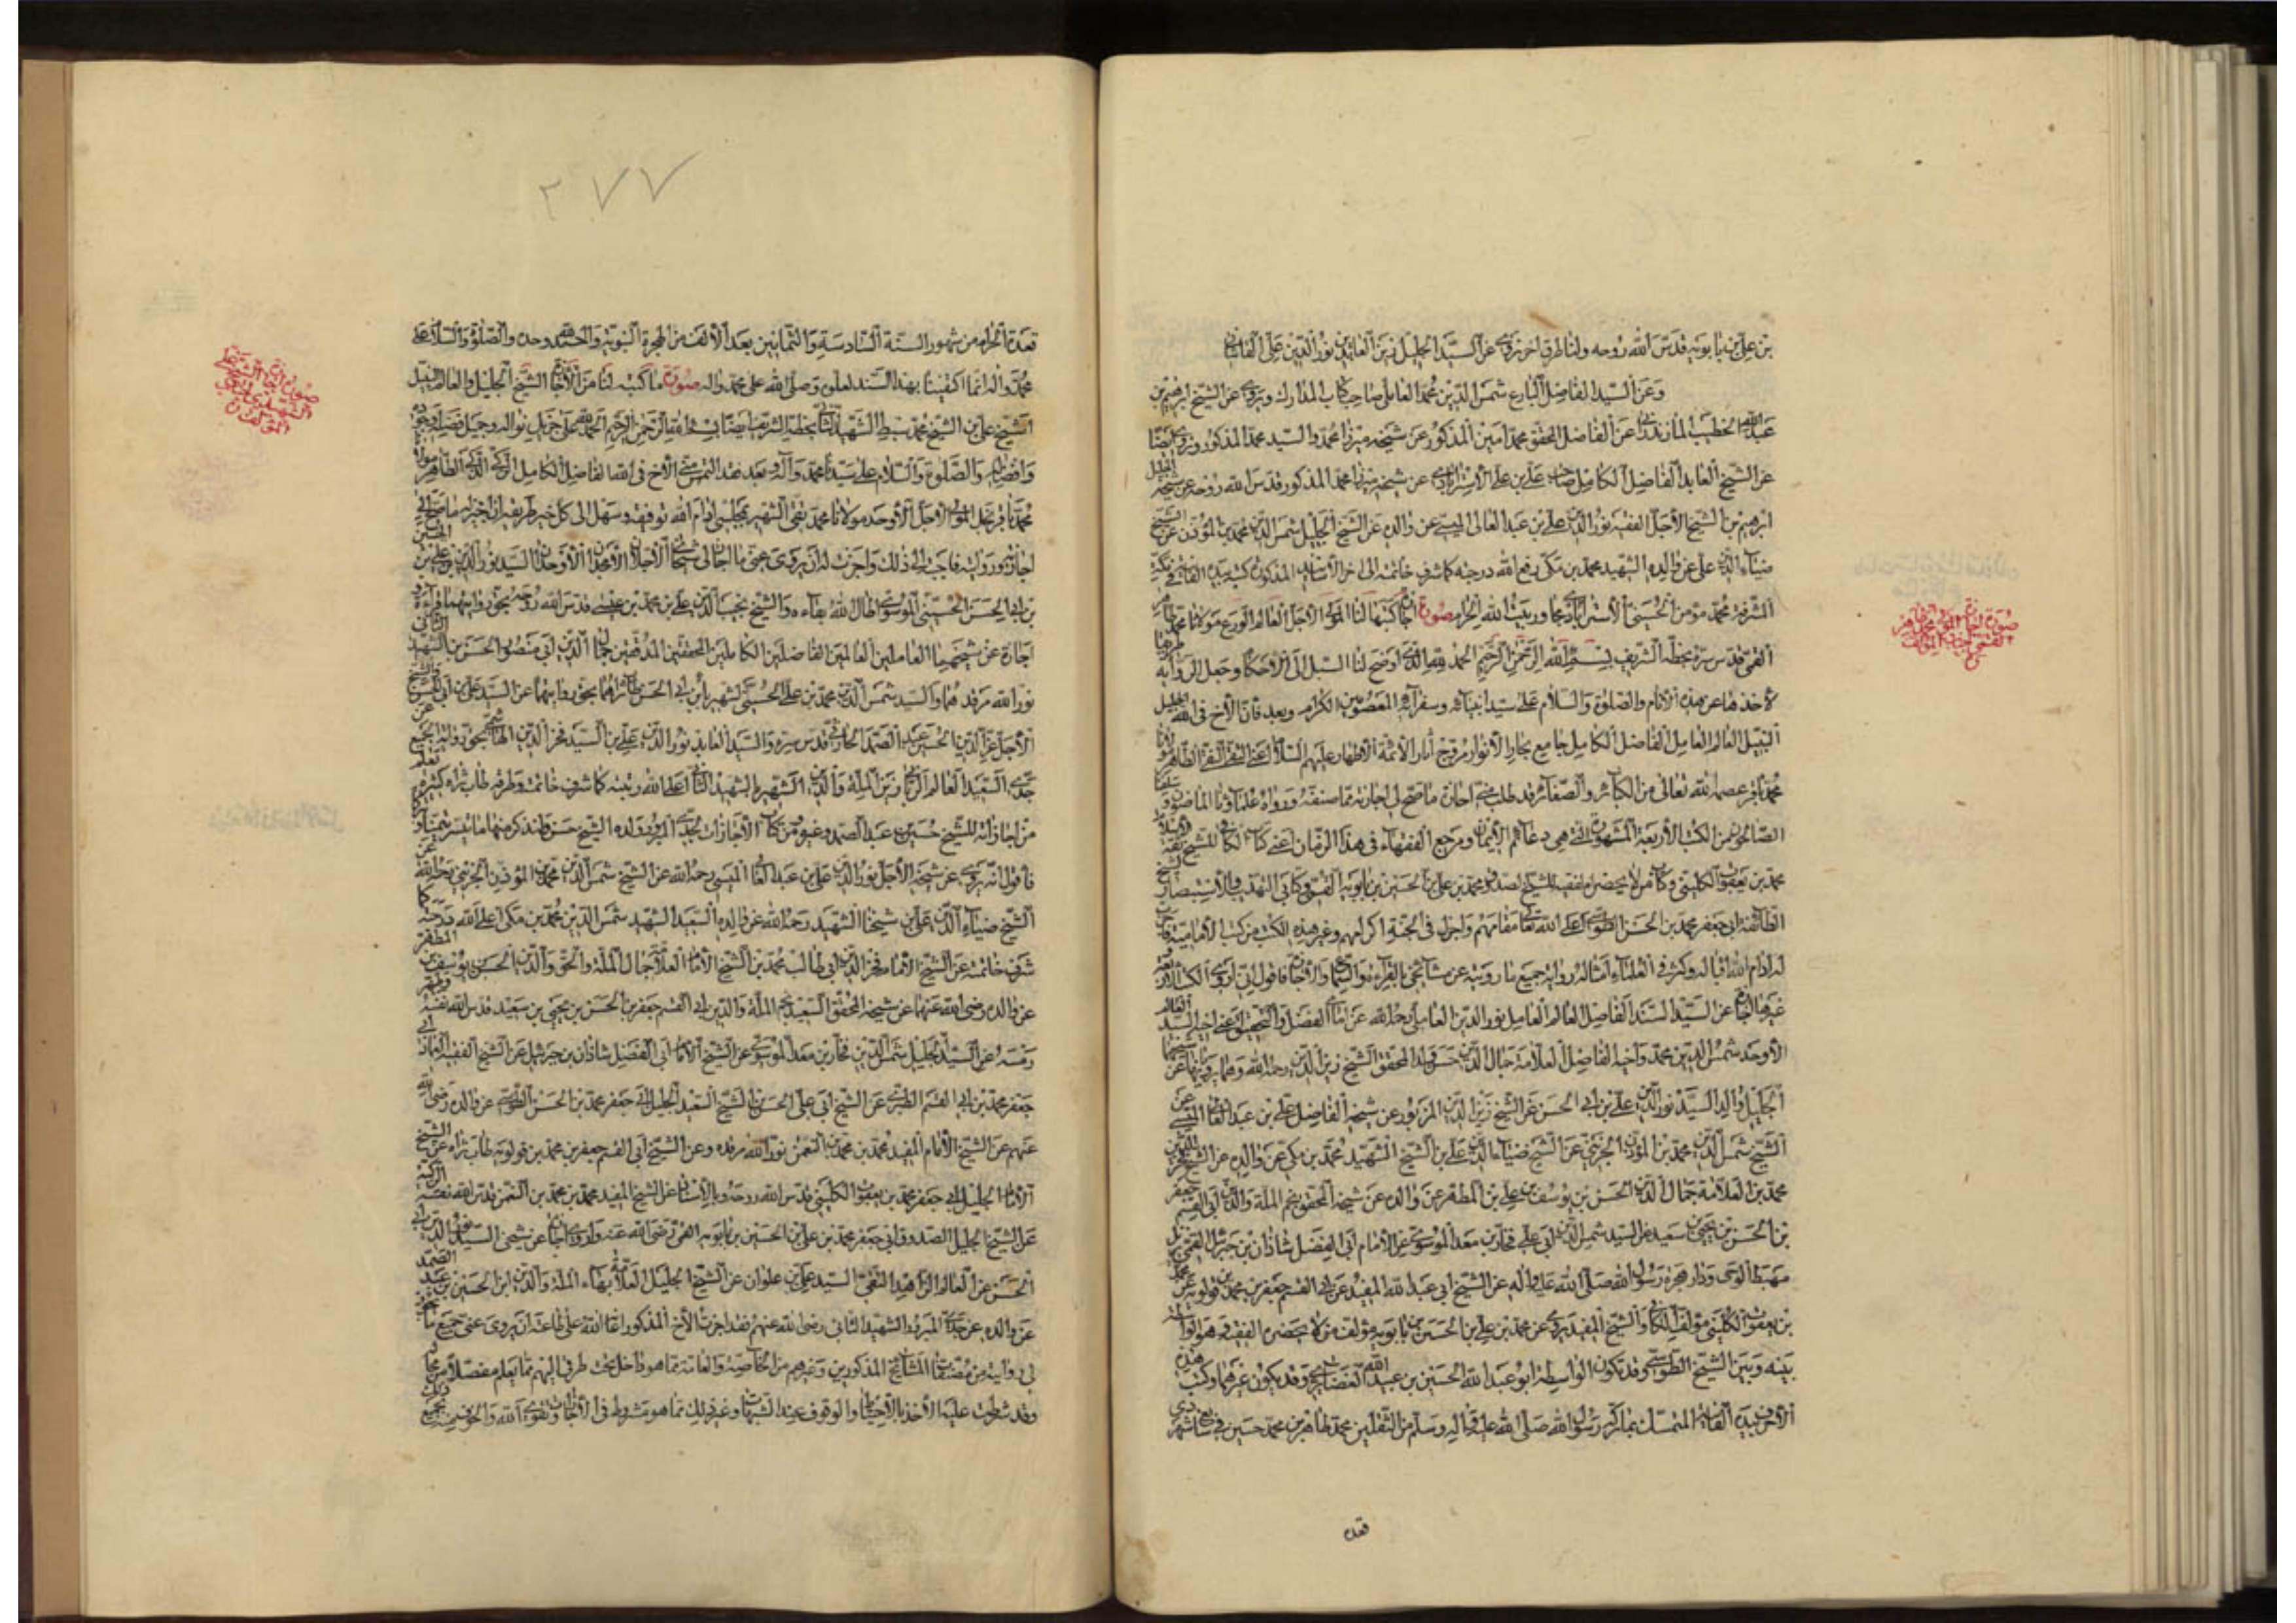 بن علي بن بابويه قدس الله روحه ولنا طرق اخر نروي عن السيد الجليل زين العابدين نور الدين علي القاساني
وعن السيد الفاضل البارع شمس الدين محمد العاملي صاحب كتاب المدارك ويروي عن الشيخ ابرهيم بن
عبد الله الخطيب المازندراني عن الفاضل المحقق محمد امين المذكور عن شيخه ميرزا محمد والسيد محمد المذكور ونروي ايضا
عن الشيخ العابد الفاضل الكامل علي بن علي الاسترابادي عن شيخه ميرزا محمد المذكور قدس الله روحه عن شيخه الجليل
ابرهيم بن الشيخ الاجل الفقيه نور الدين علي بن عبد العالي الميسي عن والده عن الشيخ الجليل شمس الدين محمد بن المؤذن عن الشيخ
ضياء الدين علي عن والده الشهيد محمد بن مكي رفع الله درجته كما شرف خاتمته الى اخر الاسانيد المذكورة كتبه بيده الفانية في مكة
المشرفة محمد مؤمن الحسيني الاسترابادي مجاور بيت الله الحرام صورة اجازة كتبها لنا المولى الاجل العالم الورع مولانا محمد طاهر
القمي قدس سره بخطه الشريف بسم الله الرحمن الرحيم الحمد لله الذي اوضح لنا السبل الى الاحكام وجعل الرواية طريقا
لاخذها عن الانام والصلوة والسلام على سيد انبيائه وسفرائه المعصومين الكرام وبعد فان الاخ في الله الجليل
النبيل العالم العامل الفاضل الكامل جامع بحار الانوار مروج اثار الائمة الاطهار عليهم السلام اعني التقي النقي الطاهر مولانا
محمد باقر عصمه الله تعالى من الكبائر والصغائر قد طلب مني اجازة ما صح لي اجازته مما صنفه ورواه علماؤنا الماضون
الصالحون من الكتب الاربعة المشهورة التي هي دعائم الايمان ومرجع الفقهاء في هذا الزمان اعني كتاب الكافي للشيخ ثقة الاسلام
محمد بن يعقوب الكليني وكتاب من لا يحضره الفقيه للشيخ الصدوق محمد بن علي بن الحسين بن بابويه القمي وكتابي التهذيب والاستبصار لشيخ
الطائفة ابي جعفر محمد بن الحسن الطوسي اعلى الله تعالى مقامهم واجزل في الجنة اكرامهم وغير هذه الكتب من كتب الامامية فاجزت
له ادام الله اقباله وكثر في العلماء امثاله رواية جميع ما رويته عن مشائخي بالقراءة والسماع والاجازة فاقول اني اروي الكتب الاربعة
وغيرها اجازة عن السيد السند الفاضل العالم العامل نور الدين العاملي رحمه الله عن امامي الفضل والتحقيق اعني اخيه السيد العالم
الاوحد شمس الدين محمد واخيه الفاضل العلامة جمال الدين حسن ولد المحقق الشيخ زين الدين رحمه الله وهما يرويان عن شيخهما
الجليل والد السيد نور الدين علي بن ابي الحسن عن الشيخ زين الدين المزبور عن شيخه الفاضل علي بن عبد العالي الميسي عن
الشيخ شمس الدين محمد بن المؤذن الجزيني عن الشيخ ضياء الدين علي بن الشيخ الشهيد محمد بن مكي عن والده عن الشيخ فخر الدين
محمد بن العلامة جمال الدين الحسن بن يوسف بن علي بن المطهر عن والده عن شيخه المحقق نجم الملة والدين ابي القسم جعفر
بن الحسن بن يحيى بن سعيد عن السيد شمس الدين ابي علي فخار بن معد الموسوي عن الامام ابي الفضل شاذان بن جبرئيل القمي نزيل
مهبط الوحي ودار هجرة رسول الله صلى الله عليه واله عن الشيخ ابي عبد الله المفيد عن ابي القسم جعفر بن محمد بن قولويه عن محمد
بن يعقوب الكليني مؤلف الكافي والشيخ المفيد يروي عن محمد بن علي بن الحسين بن بابويه مؤلف من لا يحضره الفقيه وهو الواسطة
بينه وبين الشيخ الطوسي وقد تكون الواسطة ابو عبد الله الحسين بن عبيد الله الغضايري وقد يكون غيرهما وكتب هذه
الاحرف بيده الفانية المتمسك بما تركه رسول الله صلى الله عليه واله وسلم من الثقلين محمد طاهر بن محمد حسين في شهر ذي
قعدة
صورة اجازة المولى محمد طاهر القمي بخطه للمؤلف
٢٧٧
قعدة الحرام من شهور السنة السادسة والثمانين بعد الالف من الهجرة النبوية والحمد لله وحده والصلوة والسلام على
محمد واله انما اكتفينا بهذا السند لعلوه وصلى الله على محمد واله صورة ما كتبه لنا من الاجازة الشيخ الجليل والعالم النبيل
الشيخ علي بن الشيخ محمد سبط الشهيد الثاني بخطه الشريف بسم الله الرحمن الرحيم الحمد لله على جزيل نواله وجميل فضله
وافضاله والصلوة والسلام على سيدنا محمد وآله وبعد فقد التمس مني الاخ في الله الفاضل الكامل الزكي الذكي الطاهر مولانا
محمد باقر نجل المولى الاجل الاوحد مولانا محمد تقي الشهير بمجلسي ادام الله توفيقه وسهل الى كل خير طريقه ان اجيز له ما صح لي
اجازته وروايته فاجبته الى ذلك واجزت له ان يروي عني ما اجازني شيخاي الاجلان الاوحدان السيد نور الدين علي بن الحسين
بن ابي الحسن الحسيني الموسوي اطال الله بقاءه والشيخ نجيب الدين علي بن محمد بن عيسى قدس الله روحه بحق روايتهما قراءة و
اجازة عن شيخيهما العاملين العالمين الفاضلين الكاملين المحققين المدققين جمال الدين ابي منصور الحسن بن الشهيد الثاني
نور الله مرقدهما والسيد شمس الدين محمد بن علي الحسيني الشهير بابن ابي الحسن بحق روايتهما عن السيد علي بن ابي الحسن والشيخ
الاجل عز الدين الحسين عبد الصمد الحارثي قدس سره والسيد العابد نور الدين علي بن السيد فخر الدين الهاشمي بحق روايتهم الجميع عن
جدي السعيد العالم الرباني زين الملة والدين الشهير بالشهيد الثاني اعلى الله رتبته كما شرف خاتمته وطرقه طاب ثراه كثيرة تعلم
من اجازاته للشيخ حسين بن عبد الصمد وغيره ومن كتاب الاجازات لجدي المبرور ولده الشيخ حسن ولنذكر منها ما تيسر تيمنا
فاقول انه يروي عن شيخه الاجل نور الدين علي بن عبد العالي الميسي رحمه الله عن الشيخ شمس الدين محمد بن المؤذن الجزيني رحمه الله عن
الشيخ ضياء الدين علي بن شيخنا الشهيد رحمه الله عن والده السعيد الشهيد شمس الدين محمد بن مكي اعلى الله درجته كما
شرف خاتمته عن الشيخ الامام فخر الدين ابي طالب محمد بن الشيخ الامام العلامة جمال الملة والحق والدين الحسن بن يوسف بن المطهر
عن والده رضي الله عنهما عن شيخه المحقق السعيد نجم الملة والدين ابي القسم جعفر بن الحسن بن يحيى بن سعيد قدس الله نفسه وطهر
رمسه عن السيد الجليل شمس الدين فخار بن معد الموسوي عن الشيخ الامام ابي الفضل شاذان بن جبرئيل عن الشيخ الفقيه العماد ابي
جعفر محمد بن ابي القسم الطبري عن الشيخ ابي علي الحسن بن الشيخ السعيد الجليل ابي جعفر محمد بن الحسن الطوسي عن والده رضي الله
عنهم عن الشيخ الامام المفيد محمد بن محمد بن النعمن نور الله مرقده وعن الشيخ ابي القسم جعفر بن محمد بن قولويه طاب ثراه عن الشيخ
الامام الجليل ابي جعفر محمد بن يعقوب الكليني قدس الله روحه وبالاسناد عن الشيخ المفيد محمد بن محمد بن النعمن قدس الله نفسه الزكية
عن الشيخ الجليل الصدوق ابي جعفر محمد بن علي بن الحسين بن بابويه القمي رضي الله عنه واروي اجازة عن شيخي السيد نور الدين بن ابي
الحسن عن العالم الزاهد التقي السيد علي بن علوان عن الشيخ الجليل العلامة بهاء الملة والدين ابن الحسين بن عبد الصمد
عن والده عن جدي المبرور الشهيد الثاني رضي الله عنهم فقد اجزت الاخ المذكور اعانه الله على طاعته ان يروي عني جميع ما يجوز
لي روايته من مصنفات المشائخ المذكورين وغيرهم من الخاصة والعامة مما هو داخل تحت طرقي اليهم مما يعلم مفصلا من محاله
وقد شرطت عليه الاخذ بالاحتياط والوقوف عند الشبهات وغير ذلك مما هو مشروط في الاجازات وتقوى الله